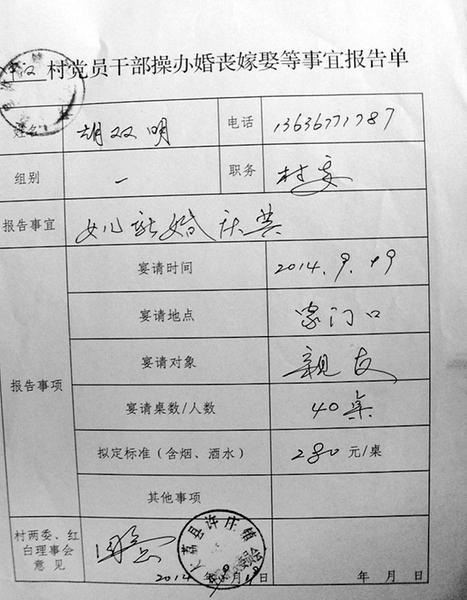 村党员干部操办婚丧嫁娶等事宜报告单
姓名 胡双明 电话 13636771787
组别 一 职务 村委
报告事宜 女儿结婚庆典
报告事项
宴请时间 2014.9.19
宴请地点 家门口
宴请对象 亲友
宴请桌数/人数 40桌
拟定标准(含烟、酒水) 280元/桌
其他事项
村两委、红白理事会意见 同意
许庄镇
2014年9月19日
年 月 日